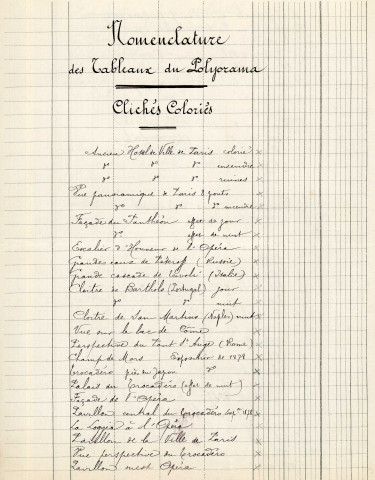 Nomenclature
des Tableaux du Polyorama
Clichés Coloriés
Ancien Hotel de Ville de Paris colorié ×
d° d° d° incendie ×
d° d° d° ruines ×
Vue panoramique de Paris 8 ponts ×
d° d° d° incendie ×
Façade du Panthéon effet de jour ×
d° effet de nuit ×
Escalier d'Honneur de l'Opéra ×
Grandes eaux de (Russie) ×
Grande cascade de Tivoli (Italie) ×
Cloître de Bartholo (Portugal) jour ×
d° d° nuit ×
Cloître de San Martino (Naples) nuit ×
Vue sur le lac de Côme ×
Perspective du Pont St Ange (Rome) ×
Champ de Mars Exposition de 1878 ×
Trocadéro pris du Japon d° ×
Palais du Trocadéro (effet de nuit) ×
Façade de l'Opéra ×
Pavillon central du Trocadéro Exp° 1878 ×
La Loggia à l'Opéra ×
Pavillon de la Ville de Paris ×
Vue perspective du Trocadéro ×
Pavillon ouest Opéra ×